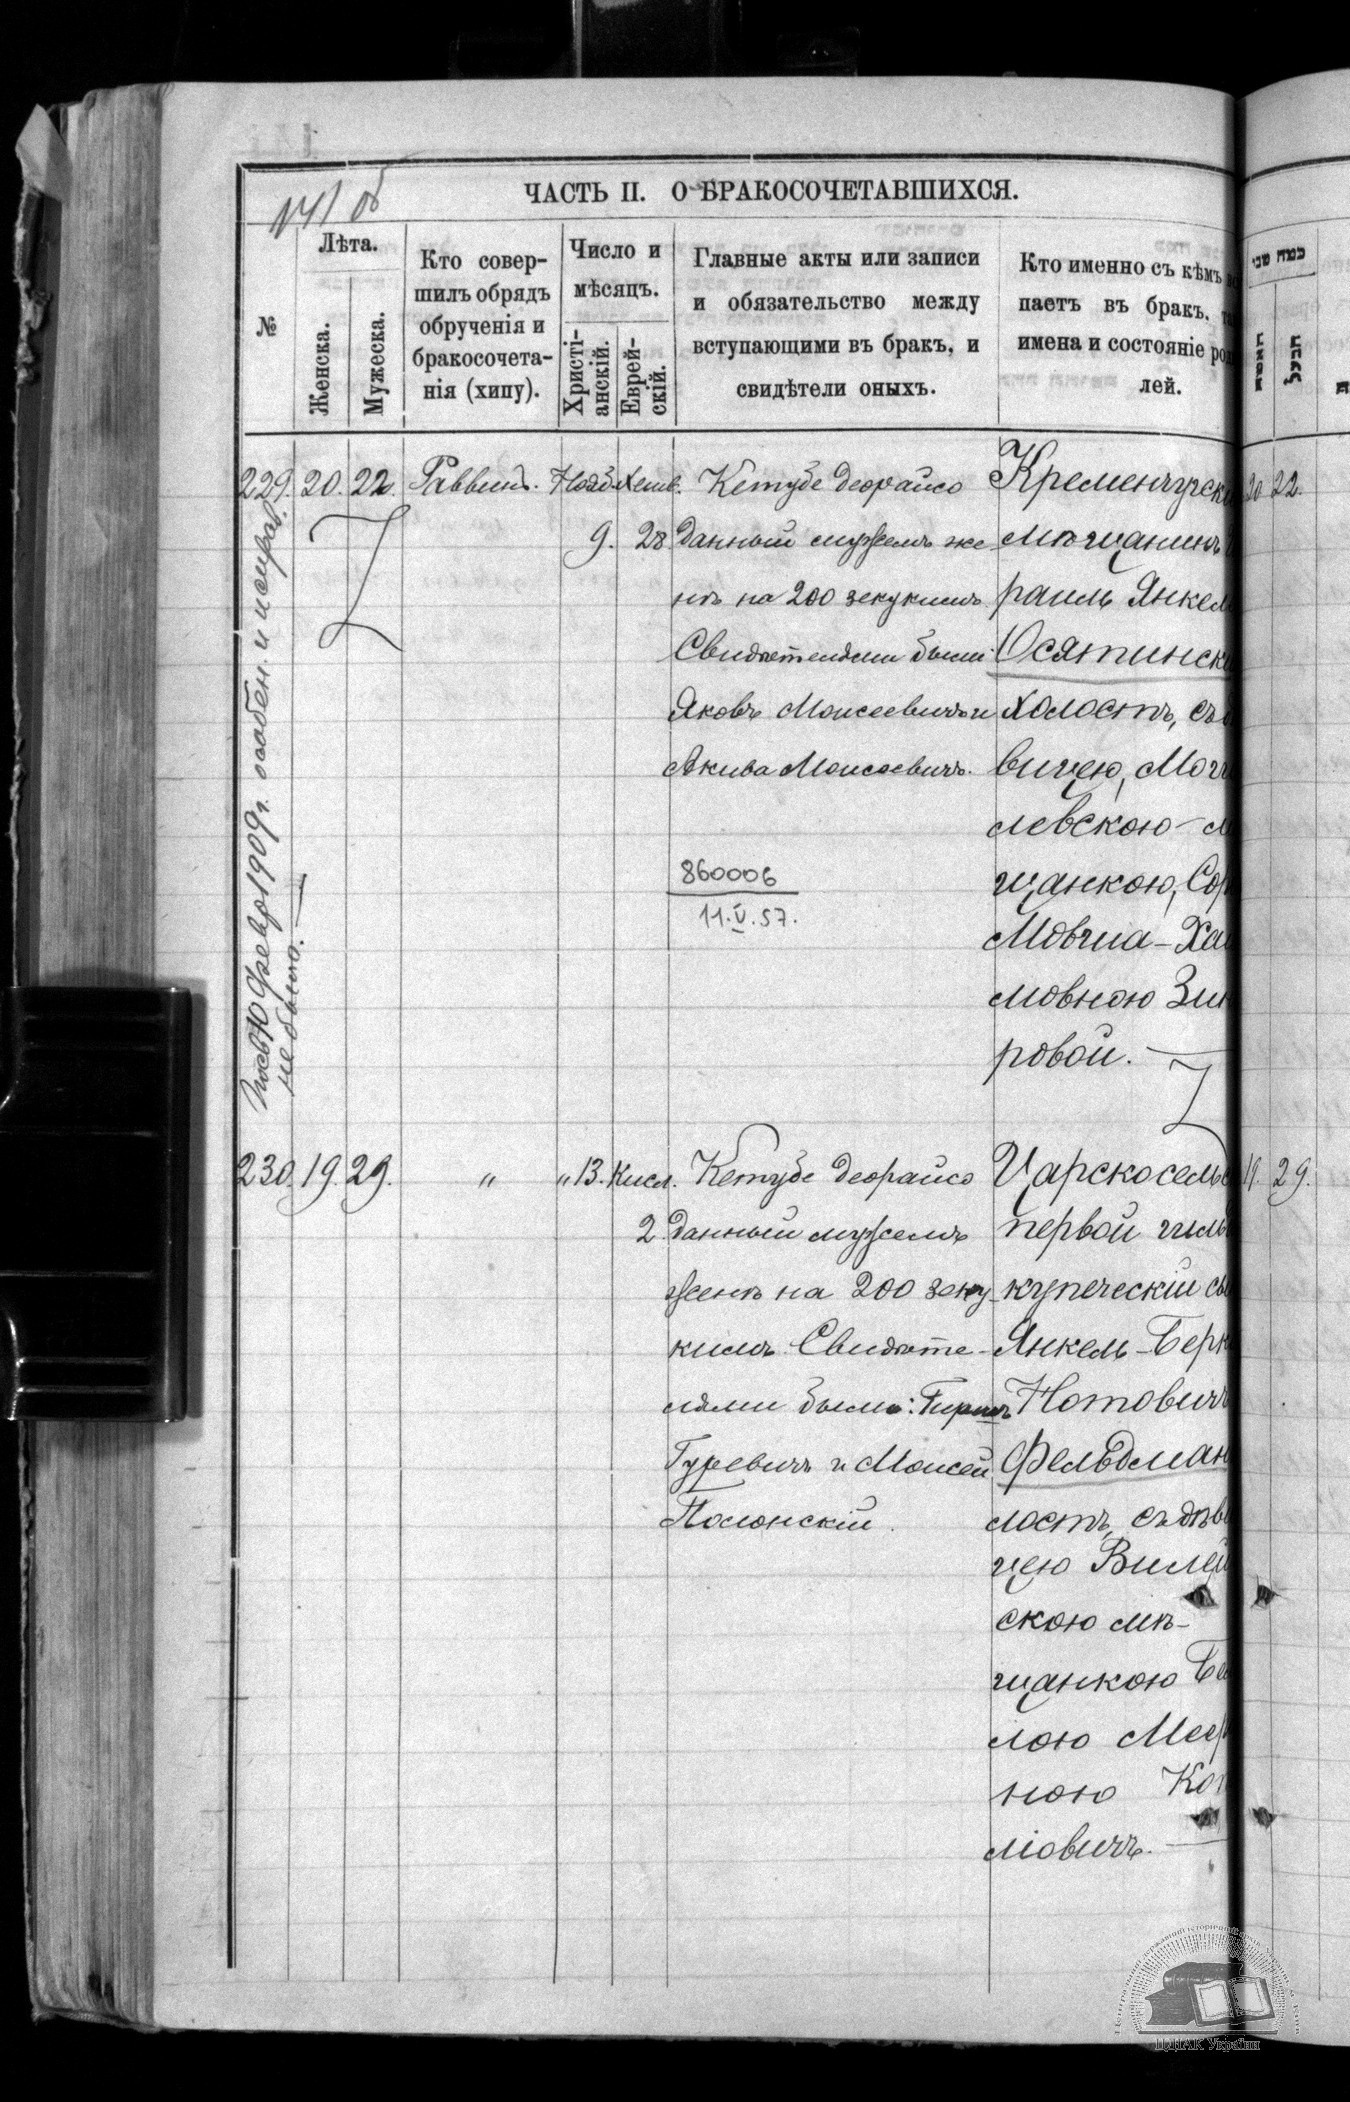 141 об
ЧАСТЬ II. О БРАКОСОЧЕТАВШИХСЯ.
№
Лѣта.
Женска.
Мужеска.
Кто совер-
шилъ обрядъ
обрученія и
бракосочета-
нія (хипу).
Число и
мѣсяцъ.
Христі-
анскій.
Еврей-
скій.
Главные акты или записи
и обязательство между
вступающими въ бракъ, и
свидѣтели оныхъ.
Кто именно съ кѣмъ вс
паетъ въ бракъ, та
имена и состояніе род
лей.
כמה שני
האשה
הבעל
229. 20. 22. Раввинъ. Нояб. Хешв.
9. 28
Кетубе деорайсо
данный мужемъ же
нѣ на 200 зекукимъ
Свидѣтелями были:
Яковъ Моисеевичъ и
Акива Моисеевичъ.
860006
11.V.57.
Кременчугски
мѣщанинъ
раиль Янкел
Осятинск
холостъ, съ
вицею, Моги
левскою м
щанкою, Сор
Мовша-Хаи
мовною Зин
ровой.
20 22.
1909 г. особен. и исправ.
не было.
230. 19. 29. " " 13. Кисл.
2
Кетубе деорайсо
данный мужемъ
женѣ на 200 зеку
кимъ. Свидѣте-
лями были: Гиршъ
Гуревичъ и Моисей
Полонскій.
Царскосельс
первой гиль
купеческій сы
Янкель-Берк
Нотовичъ
Фельдман
лостъ, съ дѣв
цею Вилей
скою мѣ-
щанкою Бе
лою Мее
ною Ко
мовичъ.
19. 29.
ЦДІАК України